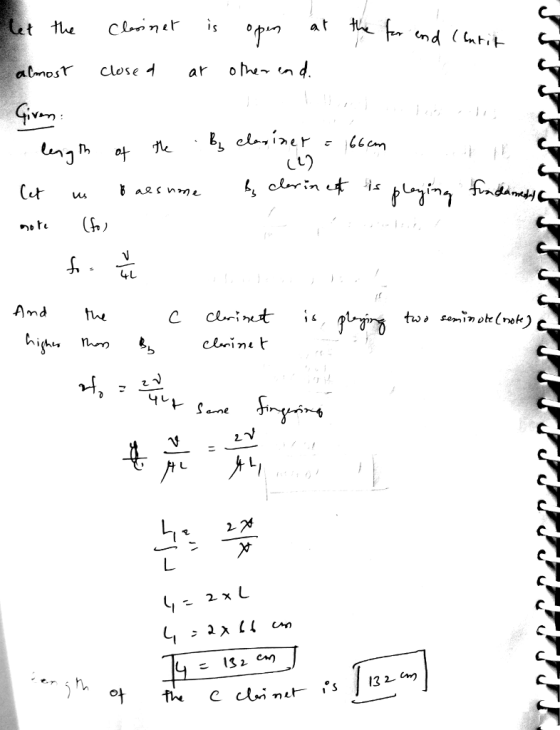 Let the Clarinet is open at the far end ( but it
almost closed at other end.
Given:
length of the B♭ clarinet = 66cm
(L)
Let us assume B♭ clarinet is playing fundamental
note (f₀)
f₀ = V/4L
And the C clarinet is playing two seminote (note)
higher than B♭ clarinet
2f₀ = 2V/4L₁
Same fingering
V/4L = 2V/4L₁
L₁/L = 2V/V
L₁ = 2 x L
L₁ = 2 x 66 cm
L₁ = 132 cm
length of the C clarinet is 132 cm